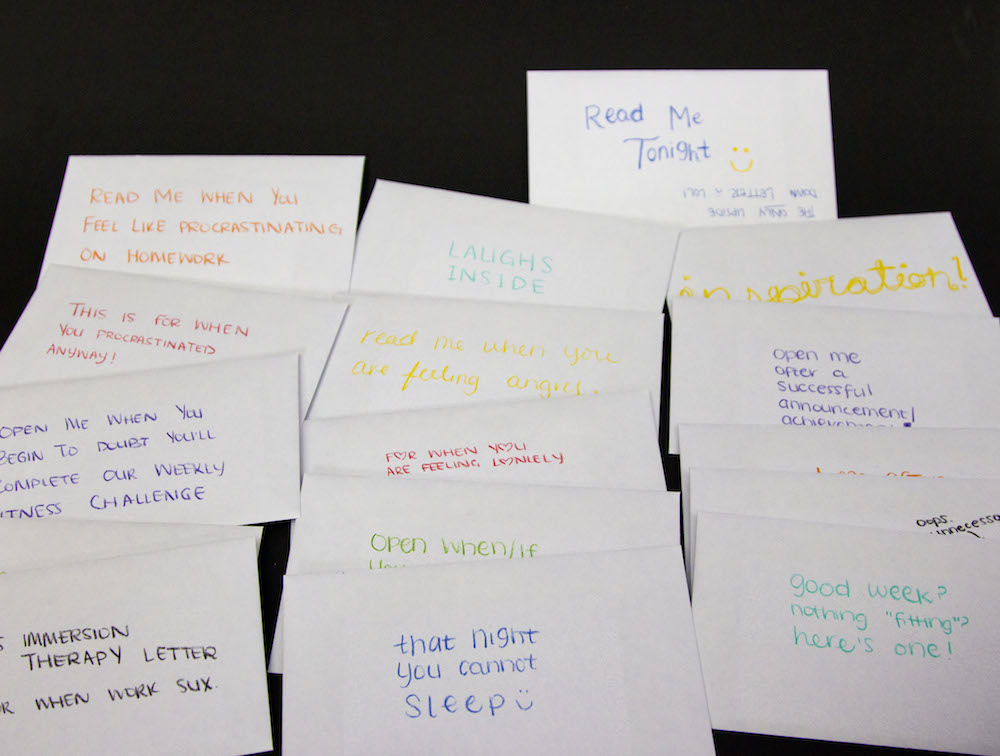 Read Me
Tonight
THE ONLY UPSIDE
DOWN LETTER LOL!
READ ME WHEN YOU
FEEL LIKE PROCRASTINATING
ON HOMEWORK
LAUGHS
INSIDE
inspiration!
THIS IS FOR WHEN
YOU PROCRASTINATED
ANYWAY!
read me when you
are feeling angry.
open me
after a
successful
announcement/
achievement
OPEN ME WHEN YOU
BEGIN TO DOUBT YOU'LL
COMPLETE OUR WEEKLY
ITNESS CHALLENGE
F♡R WHEN Y♡U
ARE FEELING L♡NLELY
oops.
Open when/if
you
S IMMERSION
THERAPY LETTER
OR WHEN WORK SUX.
that night
you cannot
SLEEP
good week?
nothing "fitting"?
here's one!